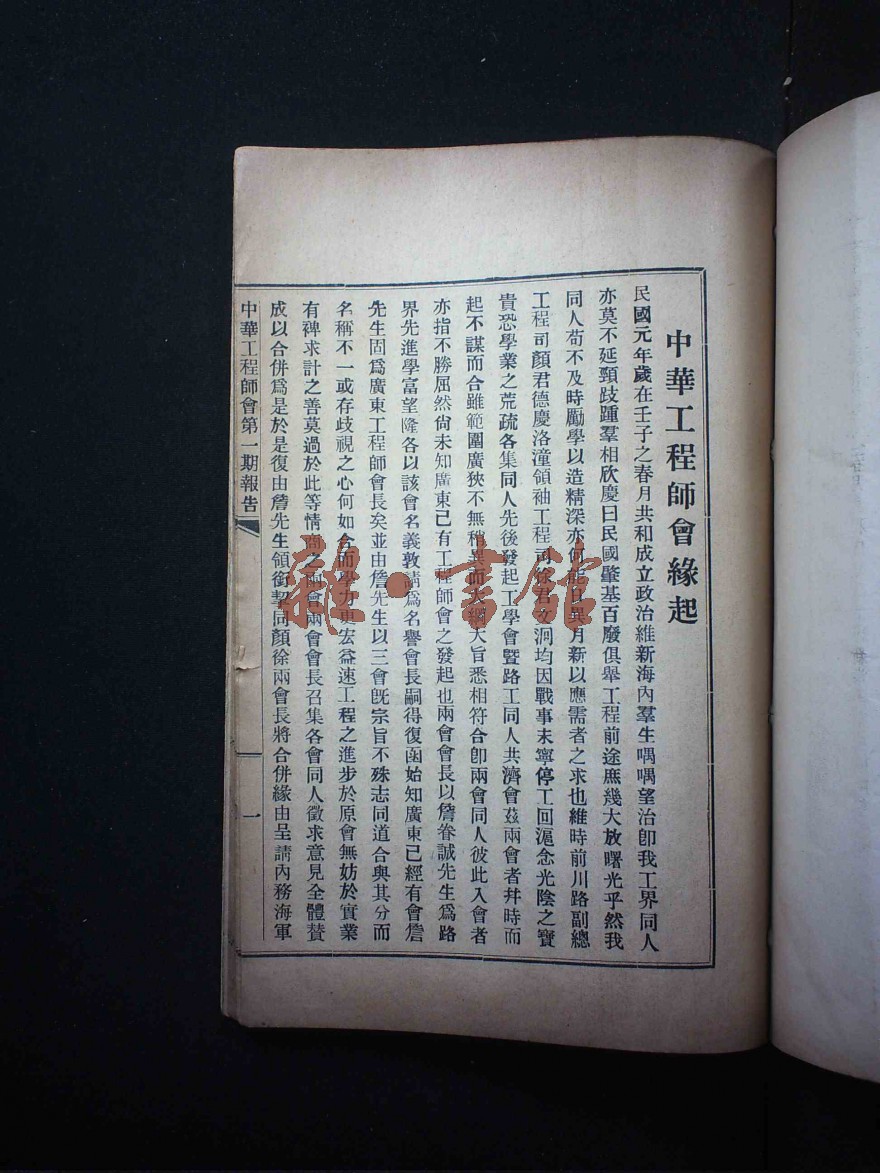 中華工程師會緣起
民國元年歲在壬子之春月共和成立政治維新海內羣生喁喁望治卽我工界同人
亦莫不延頸跂踵羣相欣慶曰民國肇基百廢俱舉工程前途庶幾大放曙光乎然我
同人苟不及時勵學以造精深亦何能日異月新以應需者之求也維時前川路副總
工程司顏君德慶洛潼領袖工程司徐君文泂均因戰事未寧停工回滬念光陰之寶
貴恐學業之荒疏各集同人先後發起工學會暨路工同人共濟會茲兩會者幷時而
起不謀而合雖範圍廣狹不無稍異而大綱大旨悉相符合卽兩會同人彼此入會者
亦指不勝屈然尙未知廣東已有工程師會之發起也兩會會長以詹眷誠先生爲路
界先進學富望隆各以該會名義敦請爲名譽會長嗣得復函始知廣東已經有會詹
先生固爲廣東工程師會長矣並由詹先生以三會旣宗旨不殊志同道合與其分而
名稱不一或存歧視之心何如合而學力更宏益速工程之進步於原會無妨於實業
有裨求計之善莫過於此等情商之兩會兩會會長召集各會同人徵求意見全體贊
成以合併爲是於是復由詹先生領銜挈同顏徐兩會長將合併緣由呈請內務海軍
中華工程師會第一期報告
一
雜·書館